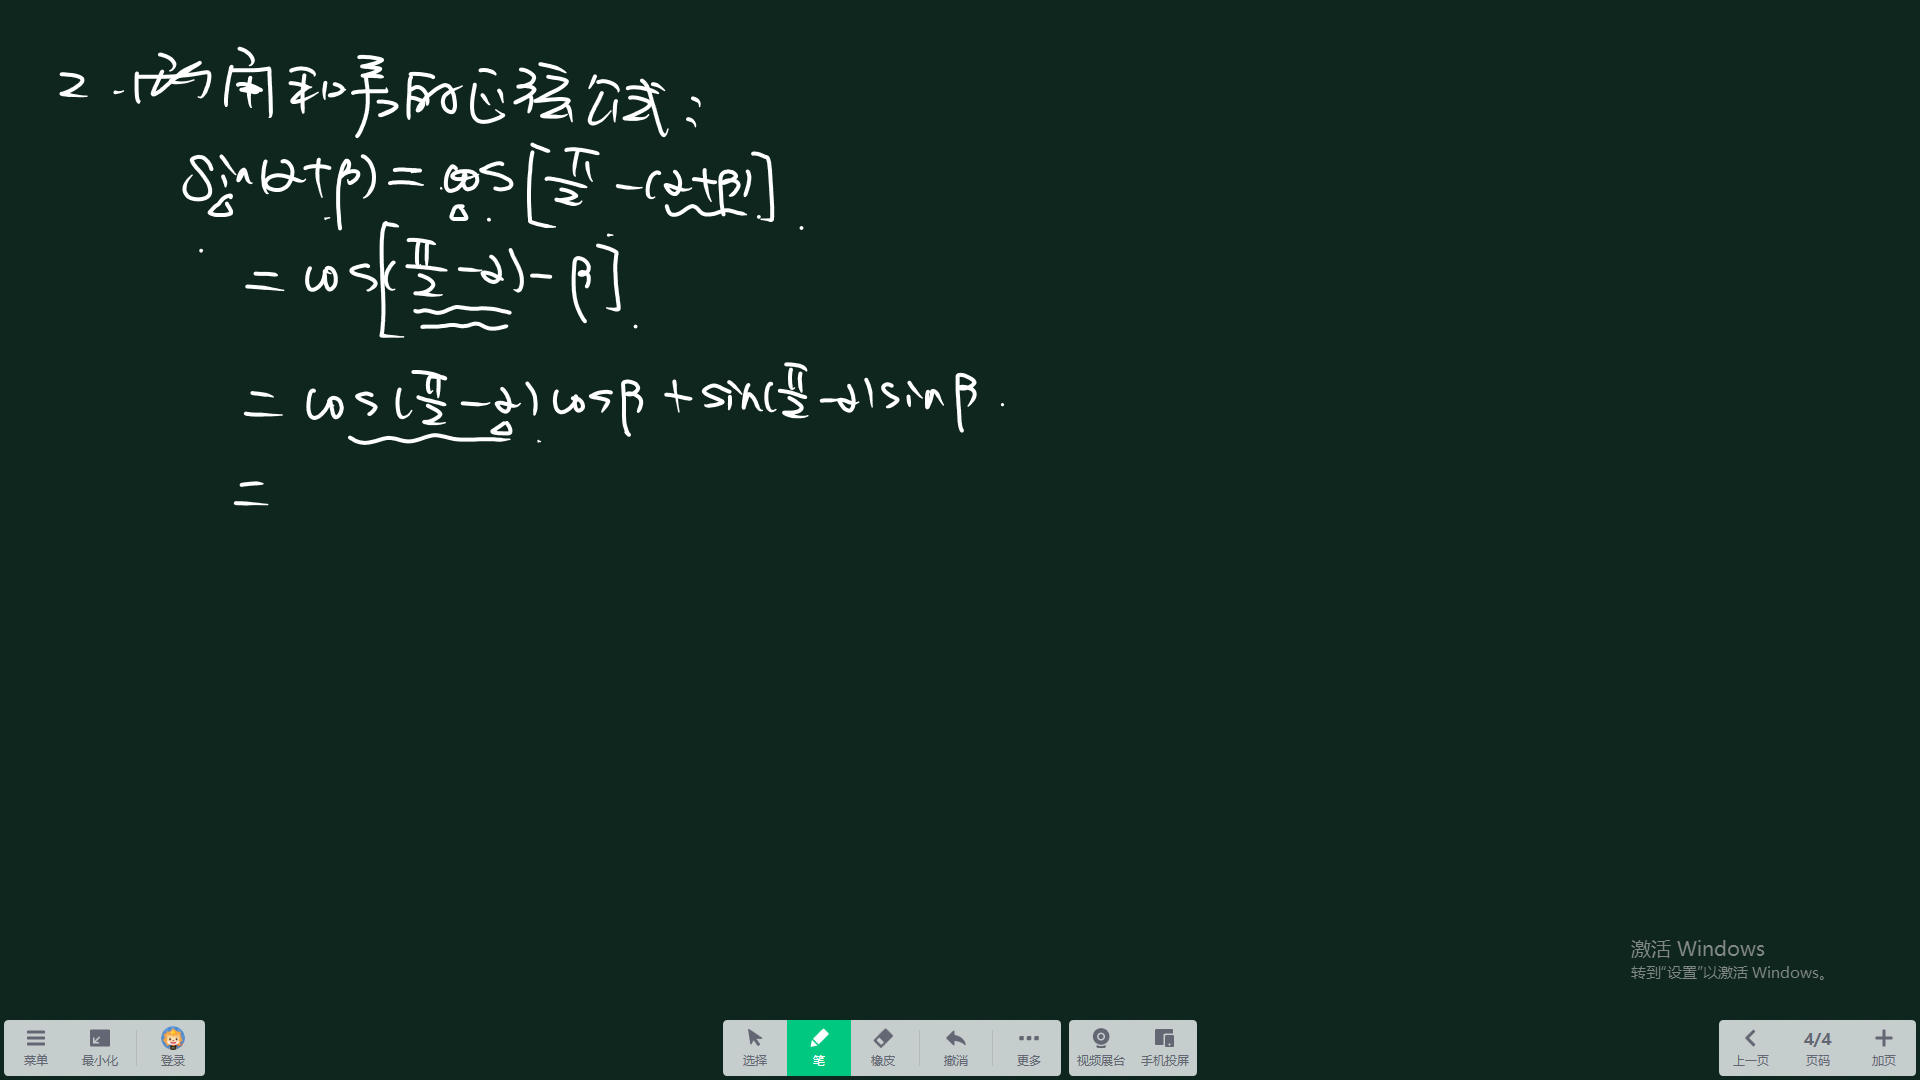 2.两角和与差的正弦公式:
sin(α+β)=cos[π/2-(α+β)]
=cos[(π/2-α)-β]
=cos(π/2-α)cosβ+sin(π/2-α)sinβ.
=
激活 Windows
转到“设置”以激活 Windows。
菜单 最小化 登录 选择 笔 橡皮 撤消 更多 视频展台 手机投屏 上一页 4/4 页码 加页